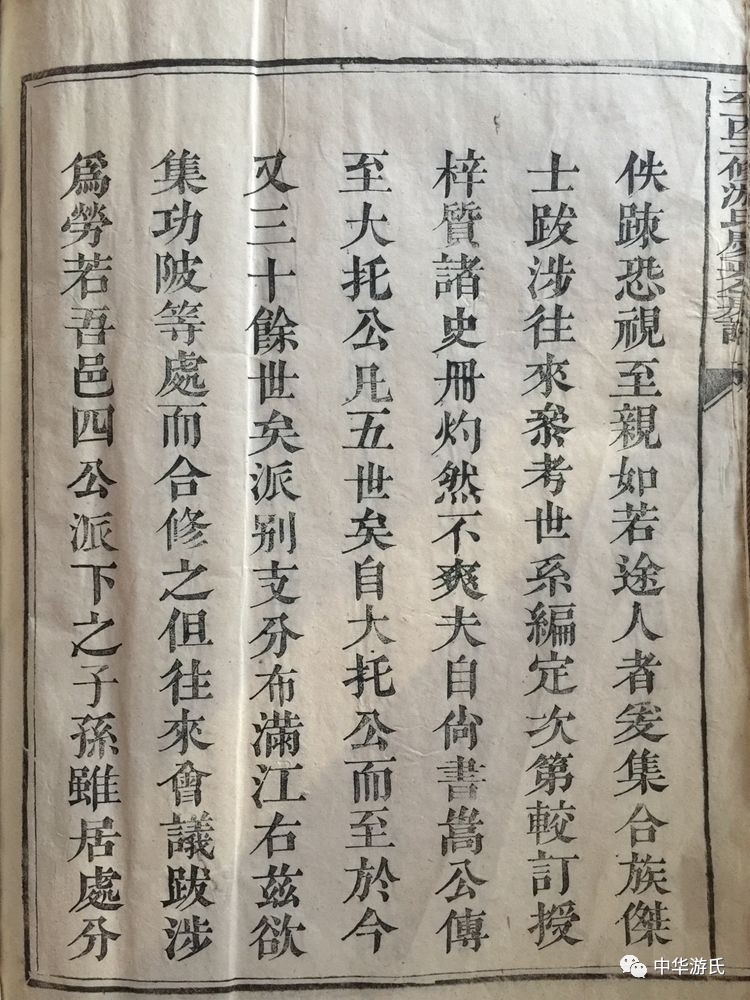 佚踈恐視至親如若途人者爰集合族傑
士跋涉往來叅考世系編定次第較訂授
梓質諸史冊灼然不爽夫自尙書嵩公傳
至大托公凡五世矣自大托公而至於今
又三十餘世矣派别支分布滿江右茲欲
集功陂等處而合修之但往來會議跋涉
爲勞若吾邑四公派下之子孫雖居處分
中华游氏